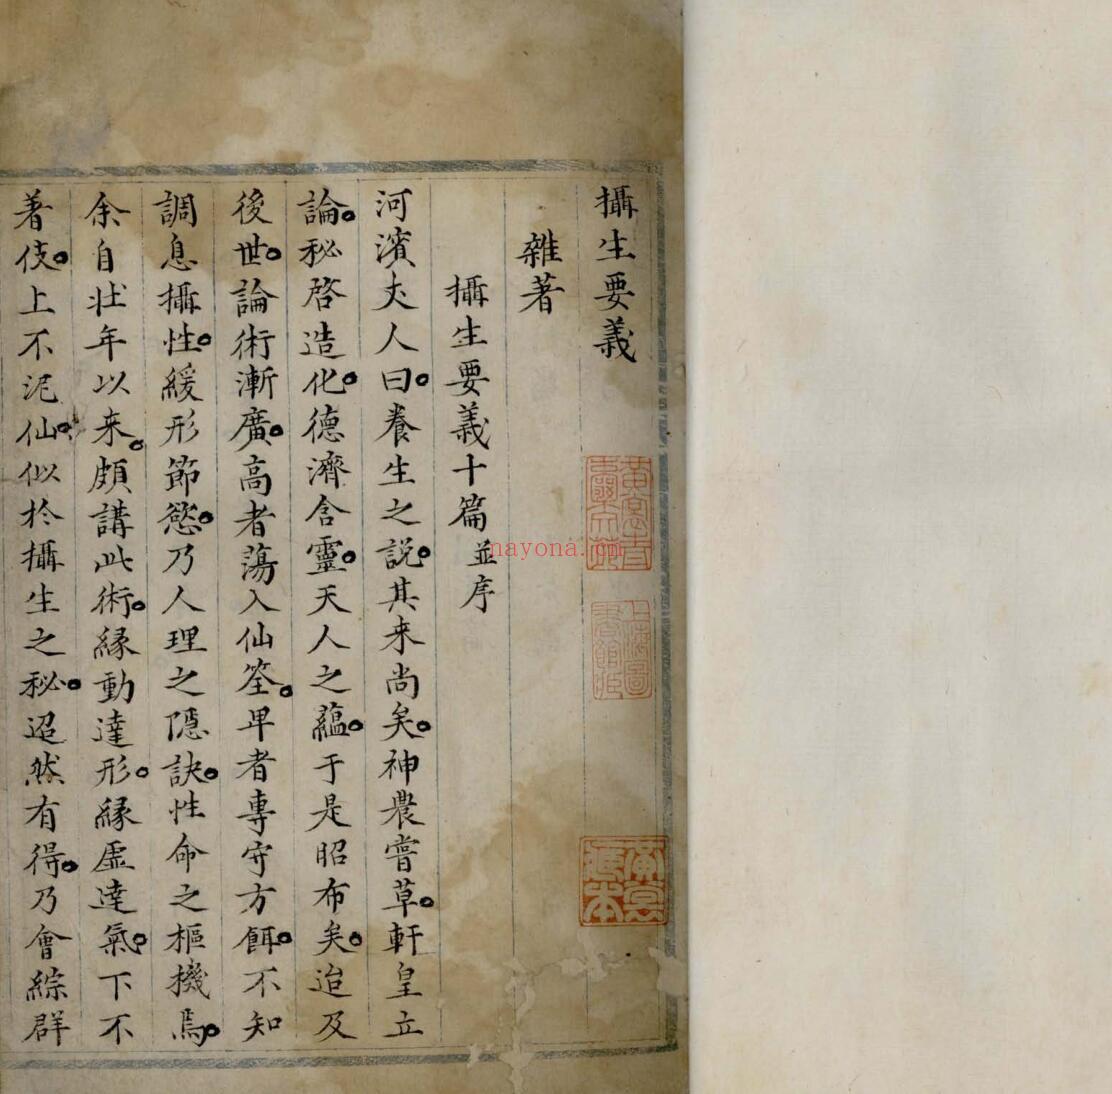 攝生要義
雜著
攝生要義十篇並序
河濱丈人曰養生之説其来尚矣神農嘗草軒皇立
論秘啓造化德濟含靈天人之蘊于是昭布矣迨及
後世論術漸廣高者蕩入仙筌卑者專守方餌不知
調息攝性緩形節慾乃人理之隱訣性命之樞機焉
余自壮年以来頗講此術緣動達形緣虛達氣下不
著伎上不泥仙似於攝生之秘迢然有得乃會綜群
上海圖
書館藏
nayona.cn